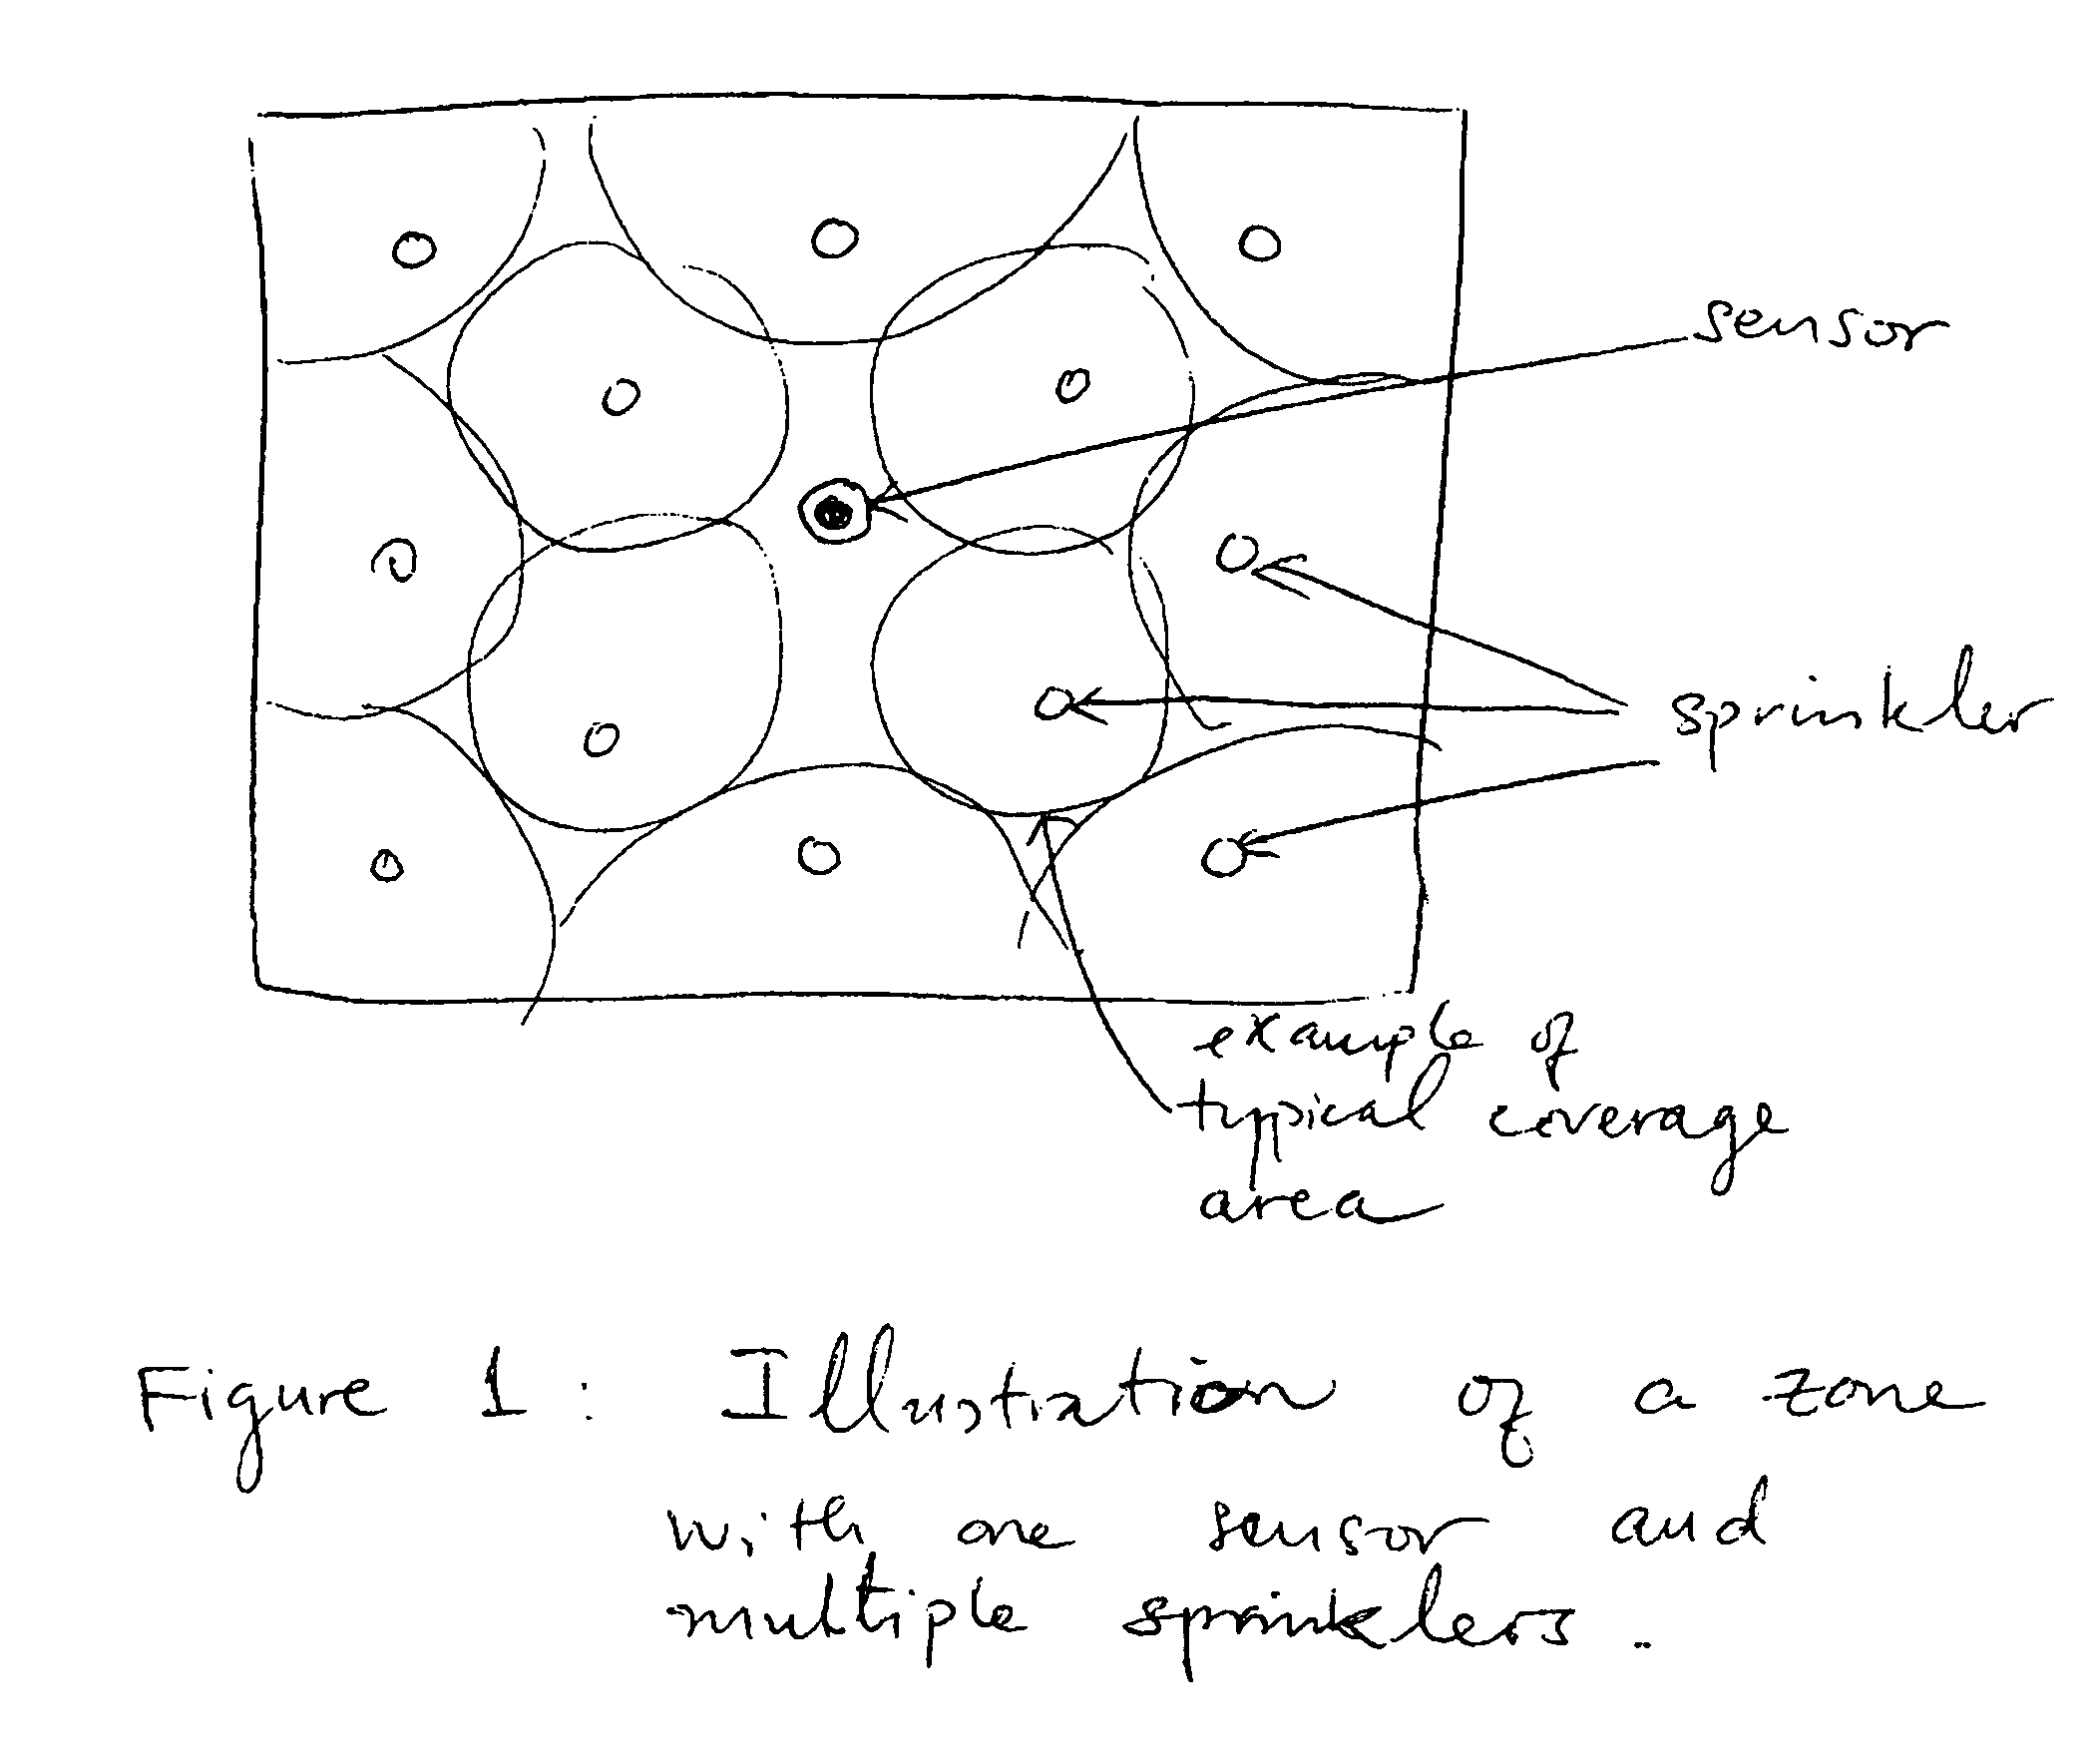 sensor
sprinkler
example of
typical coverage
area
Figure 1 : Illustration of a zone
with one sensor and
multiple sprinklers.